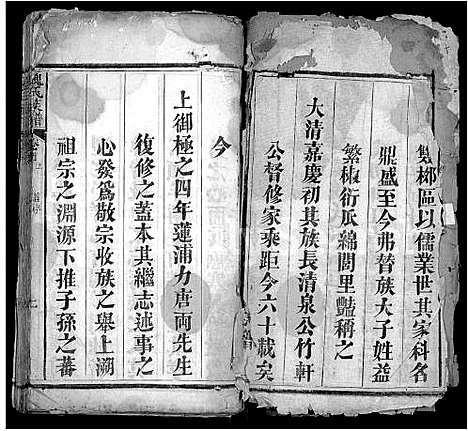 鄉區以儒業世其家科名
鼎盛至今弗替族大子姓益
繁椒衍瓜綿閭里豔稱之
大清嘉慶初其族長清泉公竹軒
公督修家乘距今六十載矣
今
上御極之四年蓮浦力唐兩先生
復修之蓋本其繼志述事之
心發爲敬宗收族之舉上溯
祖宗之淵源下推子孫之蕃
氏族譜